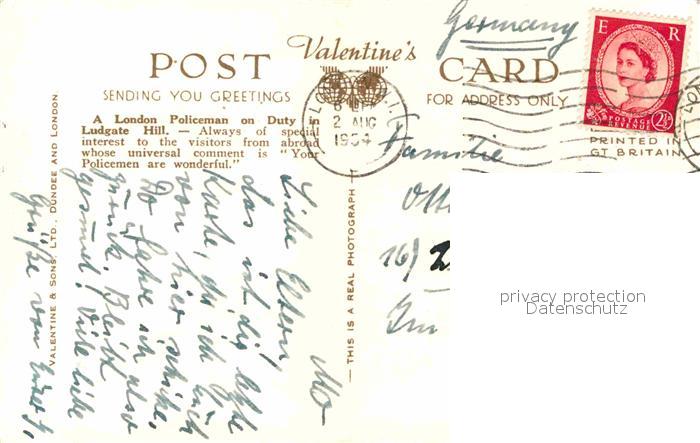 Germany
Valentine's
POST CARD
SENDING YOU GREETINGS
FOR ADDRESS ONLY
A London Policeman on Duty in
Ludgate Hill. — Always of special
interest to the visitors from abroad
whose universal comment is "Your
Policemen are wonderful."
VALENTINE & SONS, LTD., DUNDEE AND LONDON.
— THIS IS A REAL PHOTOGRAPH —
E R
POSTAGE
REVENUE
2½
PRINTED IN
GT BRITAIN
2 AUG
1954
Mo
Liebe Eltern!
das ist die letzte
Karte, die ich Euch
von hier schicke.
Do fahre ich also
zurück. Bleibt
gesund! Viele liebe
Grüße von
Familie
Ott
16)
privacy protection
Datenschutz